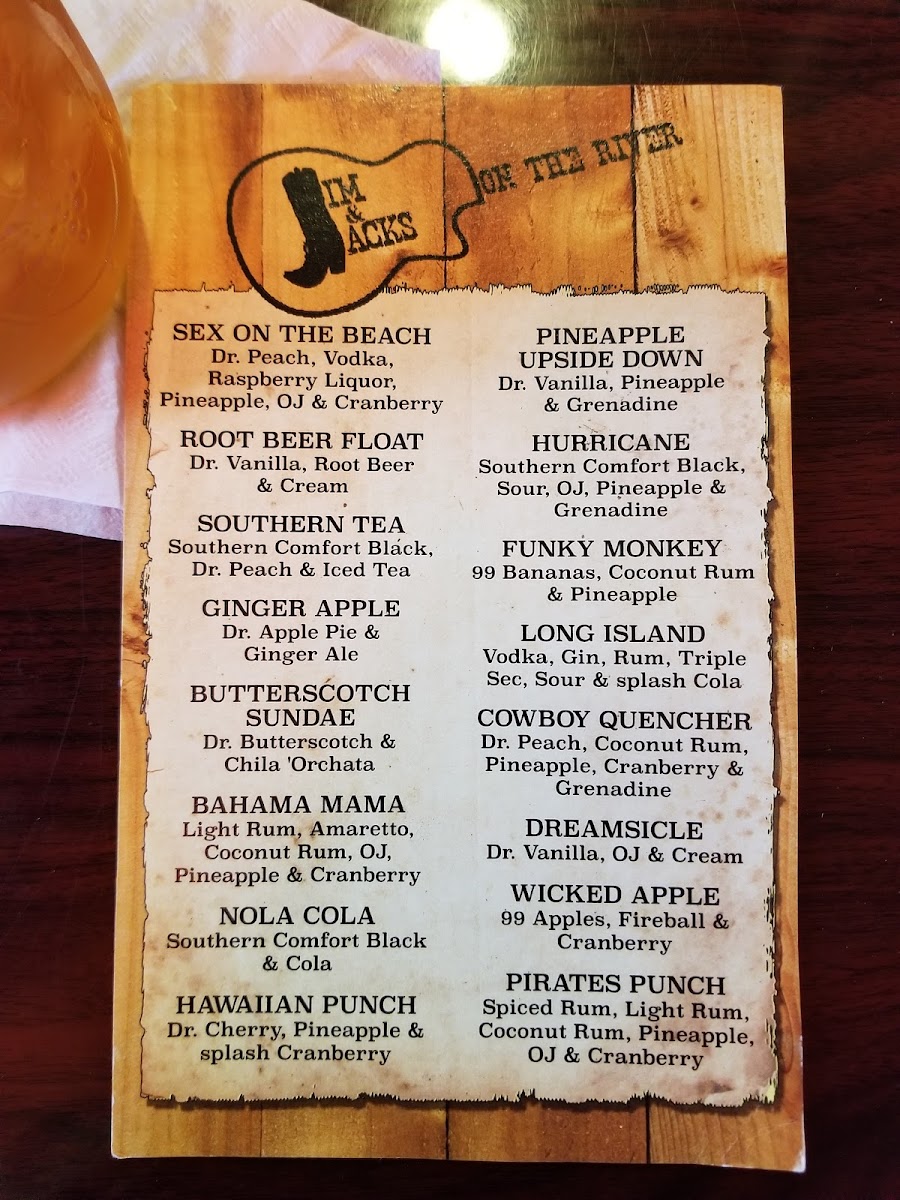 JIM
&
JACKS
ON THE RIVER
SEX ON THE BEACH
Dr. Peach, Vodka,
Raspberry Liquor,
Pineapple, OJ & Cranberry
ROOT BEER FLOAT
Dr. Vanilla, Root Beer
& Cream
SOUTHERN TEA
Southern Comfort Black,
Dr. Peach & Iced Tea
GINGER APPLE
Dr. Apple Pie &
Ginger Ale
BUTTERSCOTCH
SUNDAE
Dr. Butterscotch &
Chila 'Orchata
BAHAMA MAMA
Light Rum, Amaretto,
Coconut Rum, OJ,
Pineapple & Cranberry
NOLA COLA
Southern Comfort Black
& Cola
HAWAIIAN PUNCH
Dr. Cherry, Pineapple &
splash Cranberry
PINEAPPLE
UPSIDE DOWN
Dr. Vanilla, Pineapple
& Grenadine
HURRICANE
Southern Comfort Black,
Sour, OJ, Pineapple &
Grenadine
FUNKY MONKEY
99 Bananas, Coconut Rum
& Pineapple
LONG ISLAND
Vodka, Gin, Rum, Triple
Sec, Sour & splash Cola
COWBOY QUENCHER
Dr. Peach, Coconut Rum,
Pineapple, Cranberry &
Grenadine
DREAMSICLE
Dr. Vanilla, OJ & Cream
WICKED APPLE
99 Apples, Fireball &
Cranberry
PIRATES PUNCH
Spiced Rum, Light Rum,
Coconut Rum, Pineapple,
OJ & Cranberry